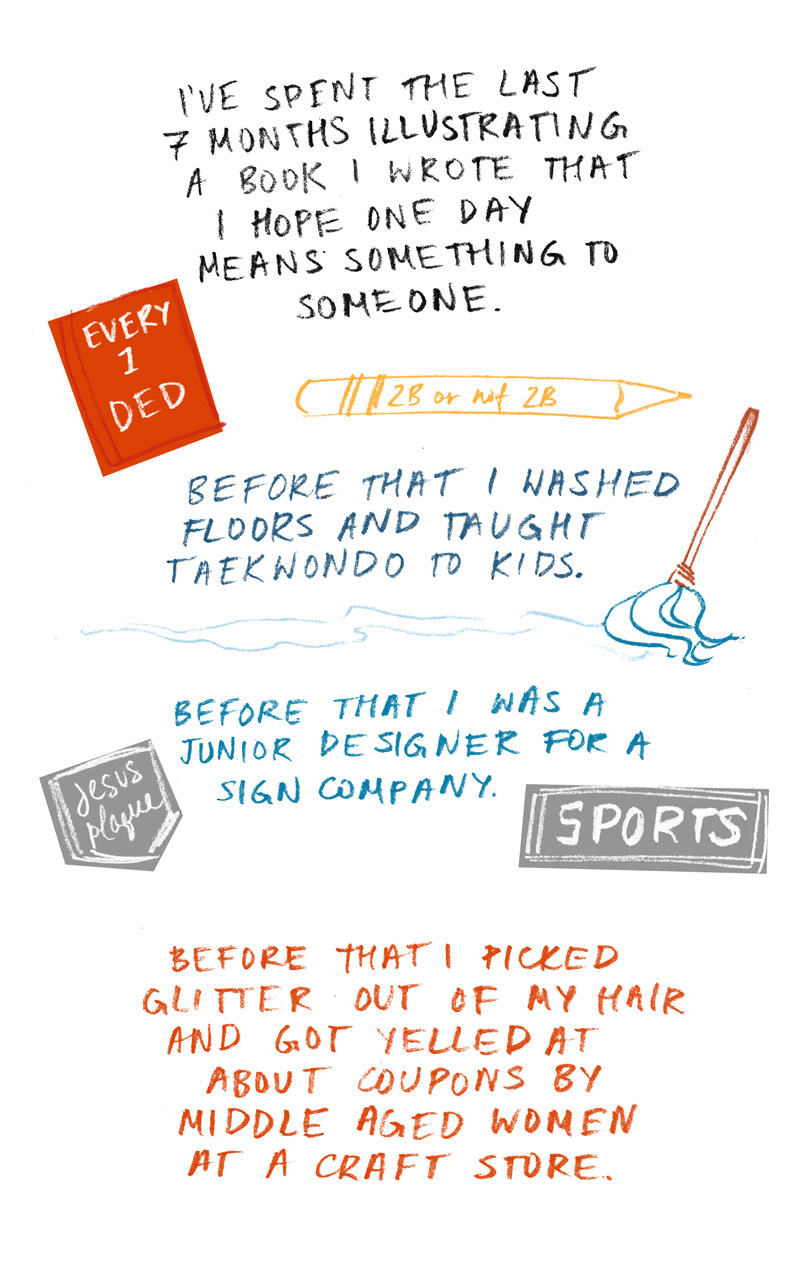 I'VE SPENT THE LAST
7 MONTHS ILLUSTRATING
A BOOK I WROTE THAT
I HOPE ONE DAY
MEANS SOMETHING TO
SOMEONE.
EVERY
1
DED
2B or not 2B
BEFORE THAT I WASHED
FLOORS AND TAUGHT
TAEKWONDO TO KIDS.
BEFORE THAT I WAS A
JUNIOR DESIGNER FOR A
SIGN COMPANY.
Jesus
plaque
SPORTS
BEFORE THAT I PICKED
GLITTER OUT OF MY HAIR
AND GOT YELLED AT
ABOUT COUPONS BY
MIDDLE AGED WOMEN
AT A CRAFT STORE.